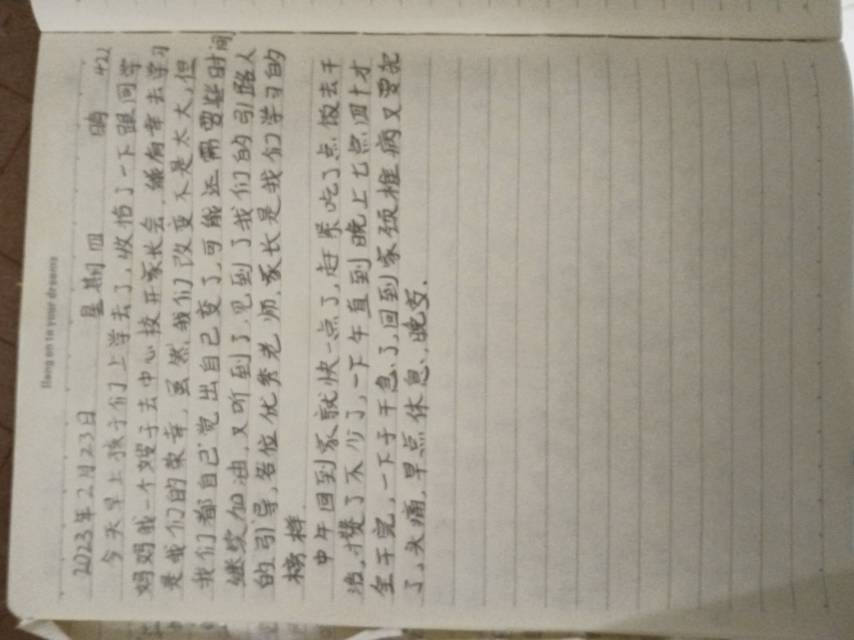 Hang on to your dreams
2023年2月23日 星期四 晴 422
今天早上孩子们上学去了,收拾了一下跟同学
妈妈我一个嫂子去中心校开家长会,缘有幸去学习
是我们的荣幸,虽然,我们改变不是太大,但
我们都自己觉出自己变了,可能还需要些时间
继续加油,又听到了,见到了我们的引路人
的引导,各位优秀老师,家长是我们学习的
榜样.
中午回到家就快一点了,赶紧吃了点饭去干
活,才攒了不少了,一下午直到晚上七点四十才
全干完,一下子干急了,回到家颈椎病又要犯
了,头痛,早点休息,晚安.